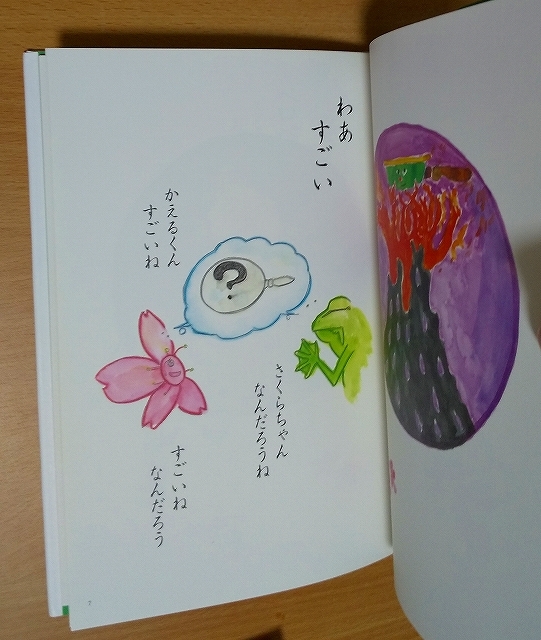 わあ
すごい
さくらちゃん
なんだろうね
かえるくん
すごいね
?
すごいね
なんだろう